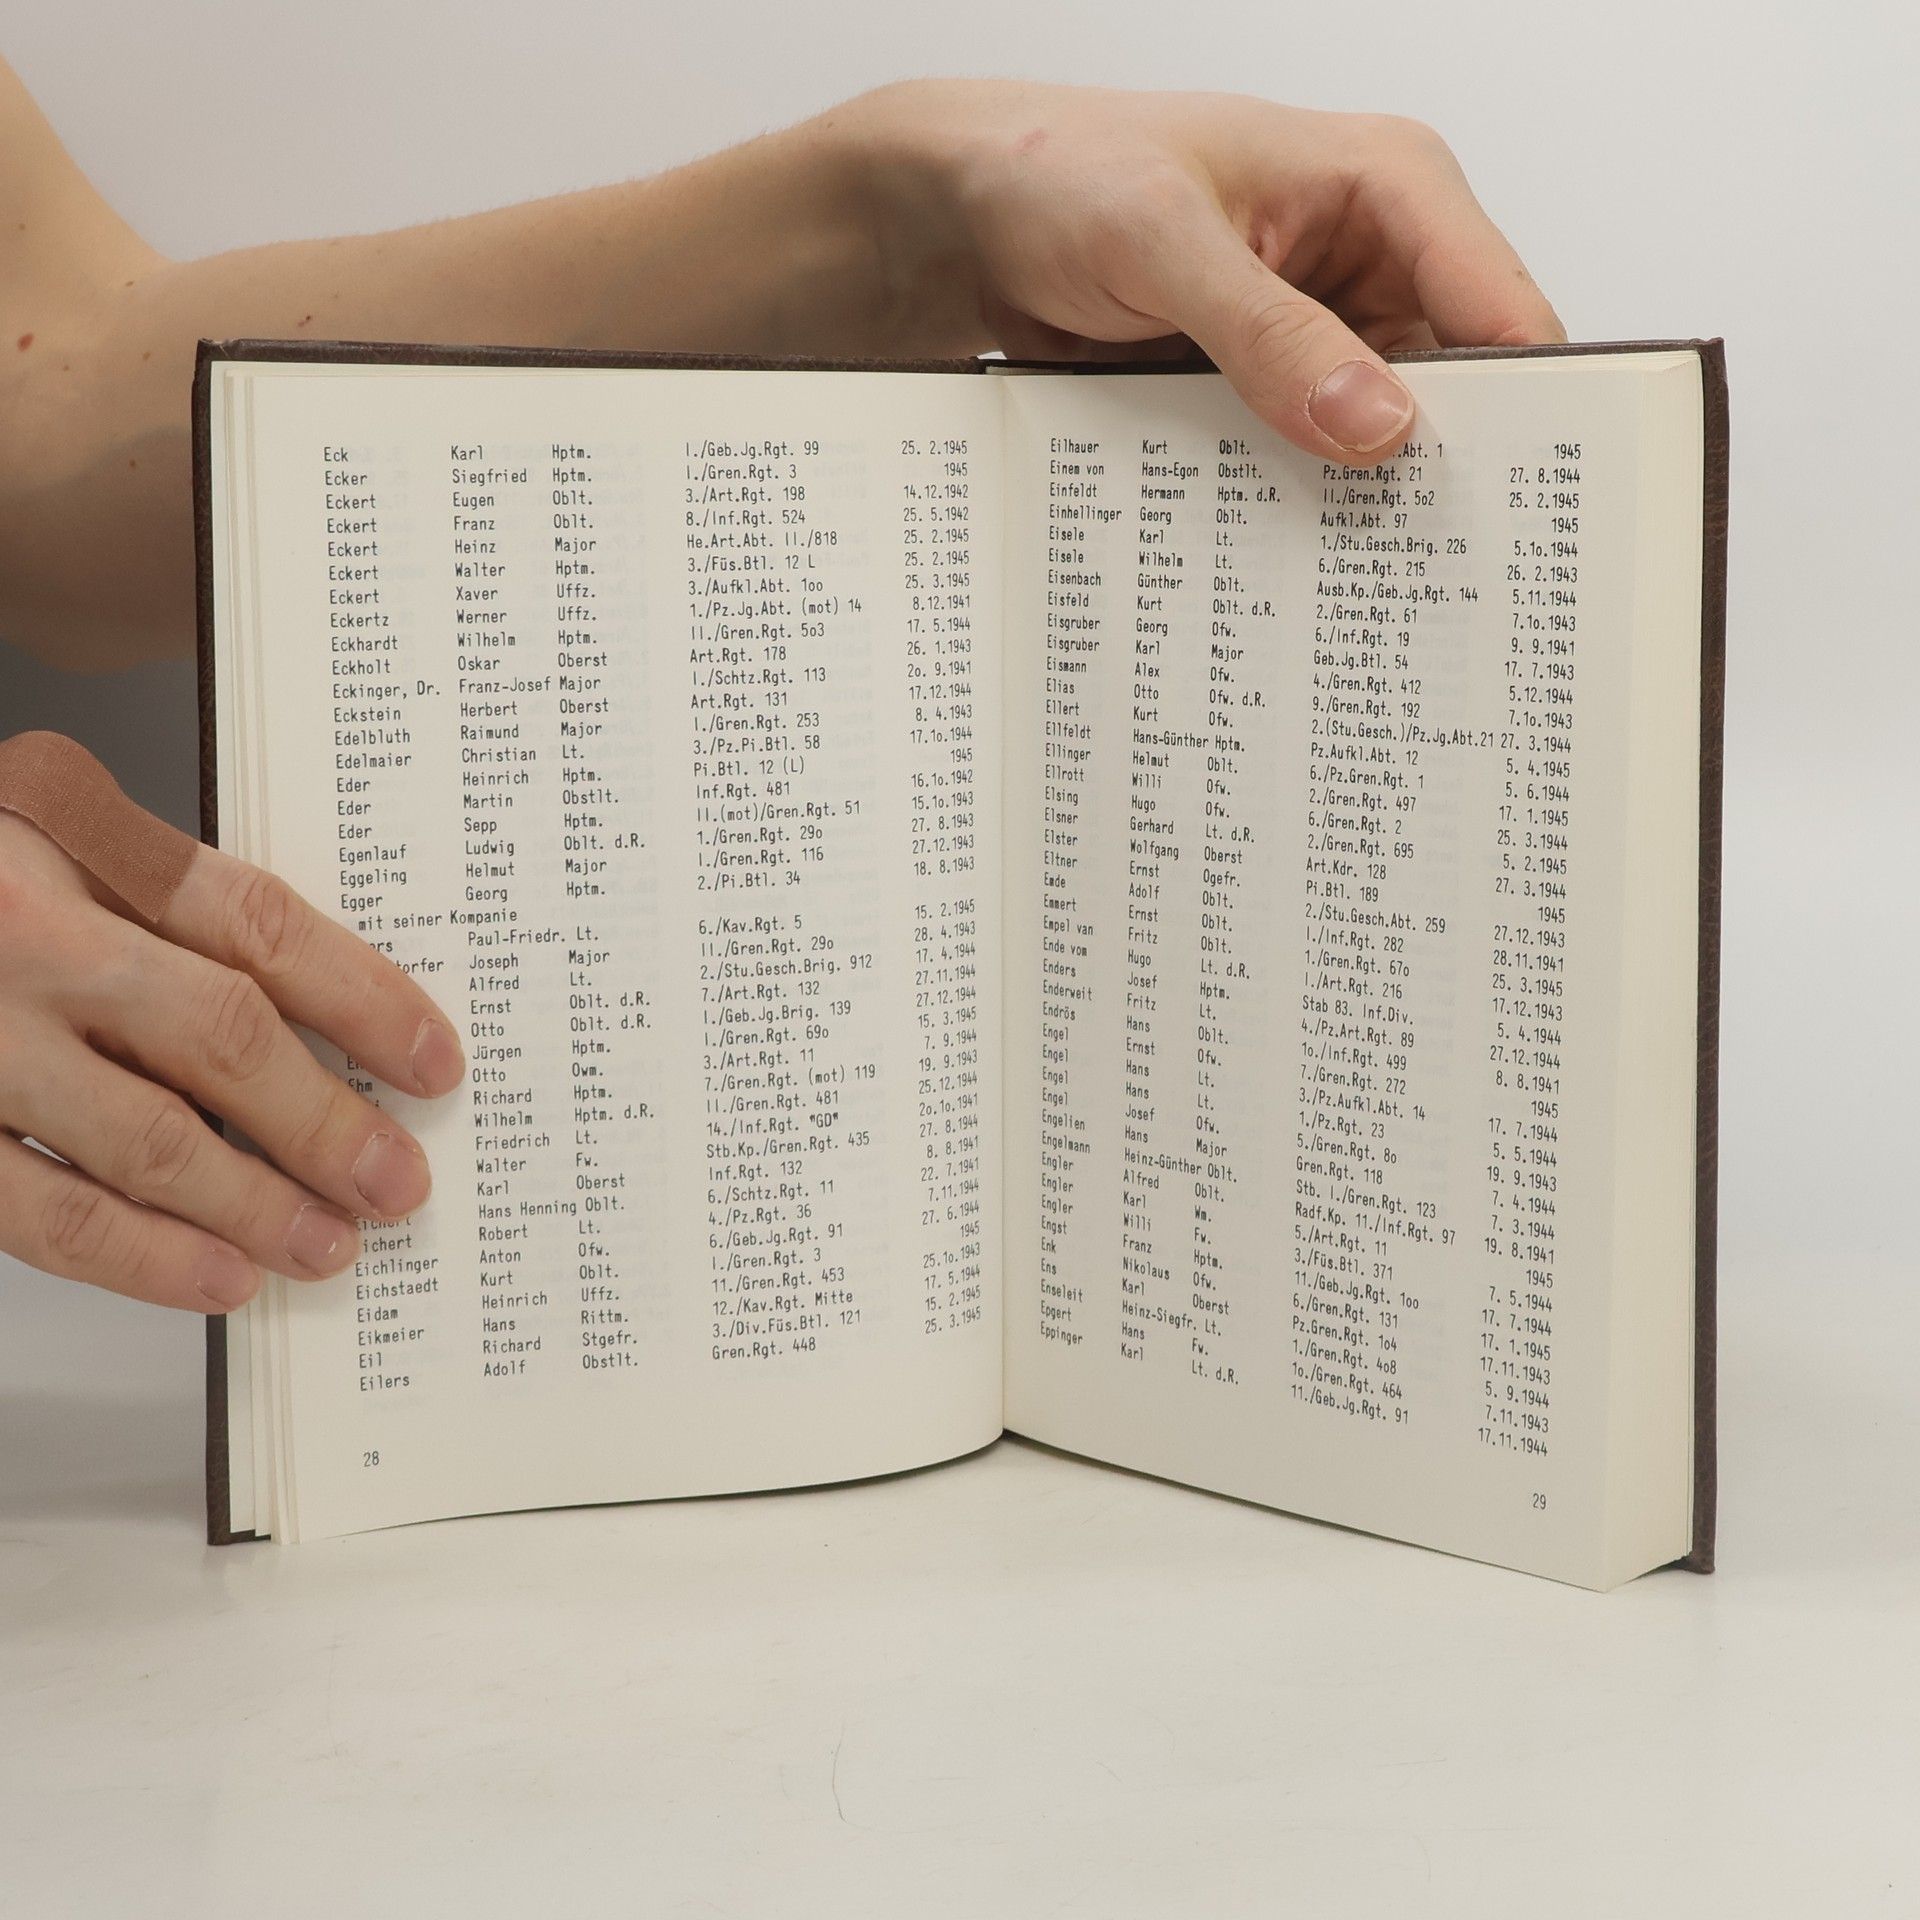 Eck Karl Hptm. I./Geb.Jg.Rgt. 99 25. 2.1945
Ecker Siegfried Hptm. I./Gren.Rgt. 3 1945
Eckert Eugen Oblt. 3./Art.Rgt. 198 14.12.1942
Eckert Franz Oblt. 8./Inf.Rgt. 524 25. 5.1942
Eckert Heinz Major He.Art.Abt. II./818 25. 2.1945
Eckert Walter Hptm. 3./Füs.Btl. 12 L 25. 2.1945
Eckert Xaver Uffz. 3./Aufkl.Abt. 1oo 25. 3.1945
Eckertz Werner Uffz. 1./Pz.Jg.Abt. (mot) 14 8.12.1941
Eckhardt Wilhelm Hptm. II./Gren.Rgt. 5o3 17. 5.1944
Eckholt Oskar Oberst Art.Rgt. 178 26. 1.1943
Eckinger, Dr. Franz-Josef Major I./Schtz.Rgt. 113 2o. 9.1941
Eckstein Herbert Oberst Art.Rgt. 131 17.12.1944
Edelbluth Raimund Major I./Gren.Rgt. 253 8. 4.1943
Edelmaier Christian Lt. 3./Pz.Pi.Btl. 58 17.1o.1944
Eder Heinrich Hptm. Pi.Btl. 12 (L) 1945
Eder Martin Obstlt. Inf.Rgt. 481 16.1o.1942
Eder Sepp Hptm. II.(mot)/Gren.Rgt. 51 15.1o.1943
Egenlauf Ludwig Oblt. d.R. 1./Gren.Rgt. 29o 27. 8.1943
Eggeling Helmut Major I./Gren.Rgt. 116 27.12.1943
Egger Georg Hptm. 2./Pi.Btl. 34 18. 8.1943
mit seiner Kompanie
Paul-Friedr. Lt. 6./Kav.Rgt. 5 15. 2.1945
Joseph Major II./Gren.Rgt. 29o 28. 4.1943
Alfred Lt. 2./Stu.Gesch.Brig. 912 17. 4.1944
Ernst Oblt. d.R. 7./Art.Rgt. 132 27.11.1944
Otto Oblt. d.R. I./Geb.Jg.Brig. 139 27.12.1944
Jürgen Hptm. I./Gren.Rgt. 69o 15. 3.1945
Otto Owm. 3./Art.Rgt. 11 7. 9.1944
Richard Hptm. 7./Gren.Rgt. (mot) 119 19. 9.1943
Wilhelm Hptm. d.R. II./Gren.Rgt. 481 25.12.1944
Friedrich Lt. 14./Inf.Rgt. "GD" 2o.1o.1941
Walter Fw. Stb.Kp./Gren.Rgt. 435 27. 8.1944
Karl Oberst Inf.Rgt. 132 8. 8.1941
Eichert Hans Henning Oblt. 6./Schtz.Rgt. 11 22. 7.1941
Eichert Robert Lt. 4./Pz.Rgt. 36 7.11.1944
Eichlinger Anton Ofw. 6./Geb.Jg.Rgt. 91 27. 6.1944
Eichstaedt Kurt Oblt. I./Gren.Rgt. 3 1945
Eidam Heinrich Uffz. 11./Gren.Rgt. 453 25.1o.1943
Eikmeier Hans Rittm. 12./Kav.Rgt. Mitte 17. 5.1944
Eil Richard Stgefr. 3./Div.Füs.Btl. 121 15. 2.1945
Eilers Adolf Obstlt. Gren.Rgt. 448 25. 3.1945
28
Eilhauer Kurt Oblt. Abt. 1 1945
Einem von Hans-Egon Obstlt. Pz.Gren.Rgt. 21 27. 8.1944
Einfeldt Hermann Hptm. d.R. II./Gren.Rgt. 5o2 25. 2.1945
Einhellinger Georg Oblt. Aufkl.Abt. 97 1945
Eisele Karl Lt. 1./Stu.Gesch.Brig. 226 5.1o.1944
Eisele Wilhelm Lt. 6./Gren.Rgt. 215 26. 2.1943
Eisenbach Günther Oblt. Ausb.Kp./Geb.Jg.Rgt. 144 5.11.1944
Eisfeld Kurt Oblt. d.R. 2./Gren.Rgt. 61 7.1o.1943
Eisgruber Georg Ofw. 6./Inf.Rgt. 19 9. 9.1941
Eisgruber Karl Major Geb.Jg.Btl. 54 17. 7.1943
Eismann Alex Ofw. 4./Gren.Rgt. 412 5.12.1944
Elias Otto Ofw. d.R. 9./Gren.Rgt. 192 7.1o.1943
Ellert Kurt Ofw. 2.(Stu.Gesch.)/Pz.Jg.Abt.21 27. 3.1944
Ellfeldt Hans-Günther Hptm. Pz.Aufkl.Abt. 12 5. 4.1945
Ellinger Helmut Oblt. 6./Pz.Gren.Rgt. 1 5. 6.1944
Ellrott Willi Ofw. 2./Gren.Rgt. 497 17. 1.1945
Elsing Hugo Ofw. 6./Gren.Rgt. 2 25. 3.1944
Elsner Gerhard Lt. d.R. 2./Gren.Rgt. 695 5. 2.1945
Elster Wolfgang Oberst Art.Kdr. 128 27. 3.1944
Eltner Ernst Ogefr. Pi.Btl. 189 1945
Emde Adolf Oblt. 2./Stu.Gesch.Abt. 259 27.12.1943
Emmert Ernst Oblt. I./Inf.Rgt. 282 28.11.1941
Empel van Fritz Oblt. 1./Gren.Rgt. 67o 25. 3.1945
Ende vom Hugo Lt. d.R. I./Art.Rgt. 216 17.12.1943
Enders Josef Hptm. Stab 83. Inf.Div. 5. 4.1944
Enderweit Fritz Lt. 4./Pz.Art.Rgt. 89 27.12.1944
Endrös Hans Oblt. 1o./Inf.Rgt. 499 8. 8.1941
Engel Ernst Ofw. 7./Gren.Rgt. 272 1945
Engel Hans Lt. 3./Pz.Aufkl.Abt. 14 17. 7.1944
Engel Hans Lt. 1./Pz.Rgt. 23 5. 5.1944
Engel Josef Ofw. 5./Gren.Rgt. 8o 19. 9.1943
Engelien Hans Major Gren.Rgt. 118 7. 4.1944
Engelmann Heinz-Günther Oblt. Stb. I./Gren.Rgt. 123 7. 3.1944
Engler Alfred Oblt. Radf.Kp. 11./Inf.Rgt. 97 19. 8.1941
Engler Karl Wm. 5./Art.Rgt. 11 1945
Engler Willi Fw. 3./Füs.Btl. 371 7. 5.1944
Engst Franz Hptm. 11./Geb.Jg.Rgt. 1oo 17. 7.1944
Enk Nikolaus Ofw. 6./Gren.Rgt. 131 17. 1.1945
Ens Karl Oberst Pz.Gren.Rgt. 1o4 17.11.1943
Enseleit Heinz-Siegfr. Lt. 1./Gren.Rgt. 4o8 5. 9.1944
Epgert Hans Fw. 1o./Gren.Rgt. 464 7.11.1943
Eppinger Karl Lt. d.R. 11./Geb.Jg.Rgt. 91 17.11.1944
29